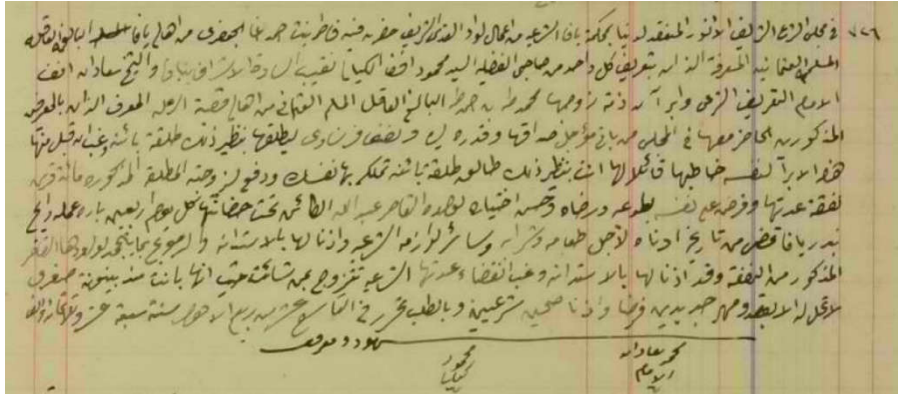 ٧٢٦ في مجلس الشرع الشريف الانور المنعقد لدينا بمحكمة يافا الشرعية من اعمال لواء القدس الشريف حضرت فيه فاطمة بنت حمد اغا الجعفري من اهالي يافا المسلمة البالغة العاقلة
المسلمة العثمانية المعرفة الذات بتعريف كل واحد من صاحبي الفضيلة السيد محمود افندي الكيالي نقيب السادة الاشراف بيافا والشيخ سعاد الله افندي
الامام التعريف الشرعي وابرأت ذمة زوجها محمد بن البالغ العاقل المسلم العثماني من اهالي قصبة الرملة المعرف الذات بالمعرفين
المذكورين الحاضر معها في المجلس من باقي مؤجل صداقها وقدره ونصف فرنساوي ليطلقها بنظير ذلك طلقة بائنة وغب ان قبل منها
هذا الابرآ لنفسه خاطبها قائلا لها انت بنظير ذلك طالق طلقة بائنة تملكي بها نفسك ودفع لزوجته المطلقة المذكورة مائة قرش
نفقة عدتها وفرض على نفسه بطوعه ورضاه وحسن اختياره لولده القاصر عبد الله الكائن تحت حضانتها كل يوم اربعين باره عملة رايج
بندر يافا تمضي من تاريخ ادناه لاجل طعامه وشرابه وسائر لوازمه الشرعية واذن لها بالاستدانة والرجوع بما يتجمد لولدها القاصر
المذكور من النفقة وقد اذن لها بالاستدانة وغب انقضاء عدتها الشرعية تتزوج بمن شائت حيث انها بانت منه بينونة صغرى
لا تحل له الا بعقد ومهر جديدين فرضا واذنا صحيحين شرعيين وبالطلب تحرر في التاسع عشر من ربيع الاخر سنة سبعة عشر وثلاثمائة والف
شهود
محمد سعاد الله الامام
محمود كيالي